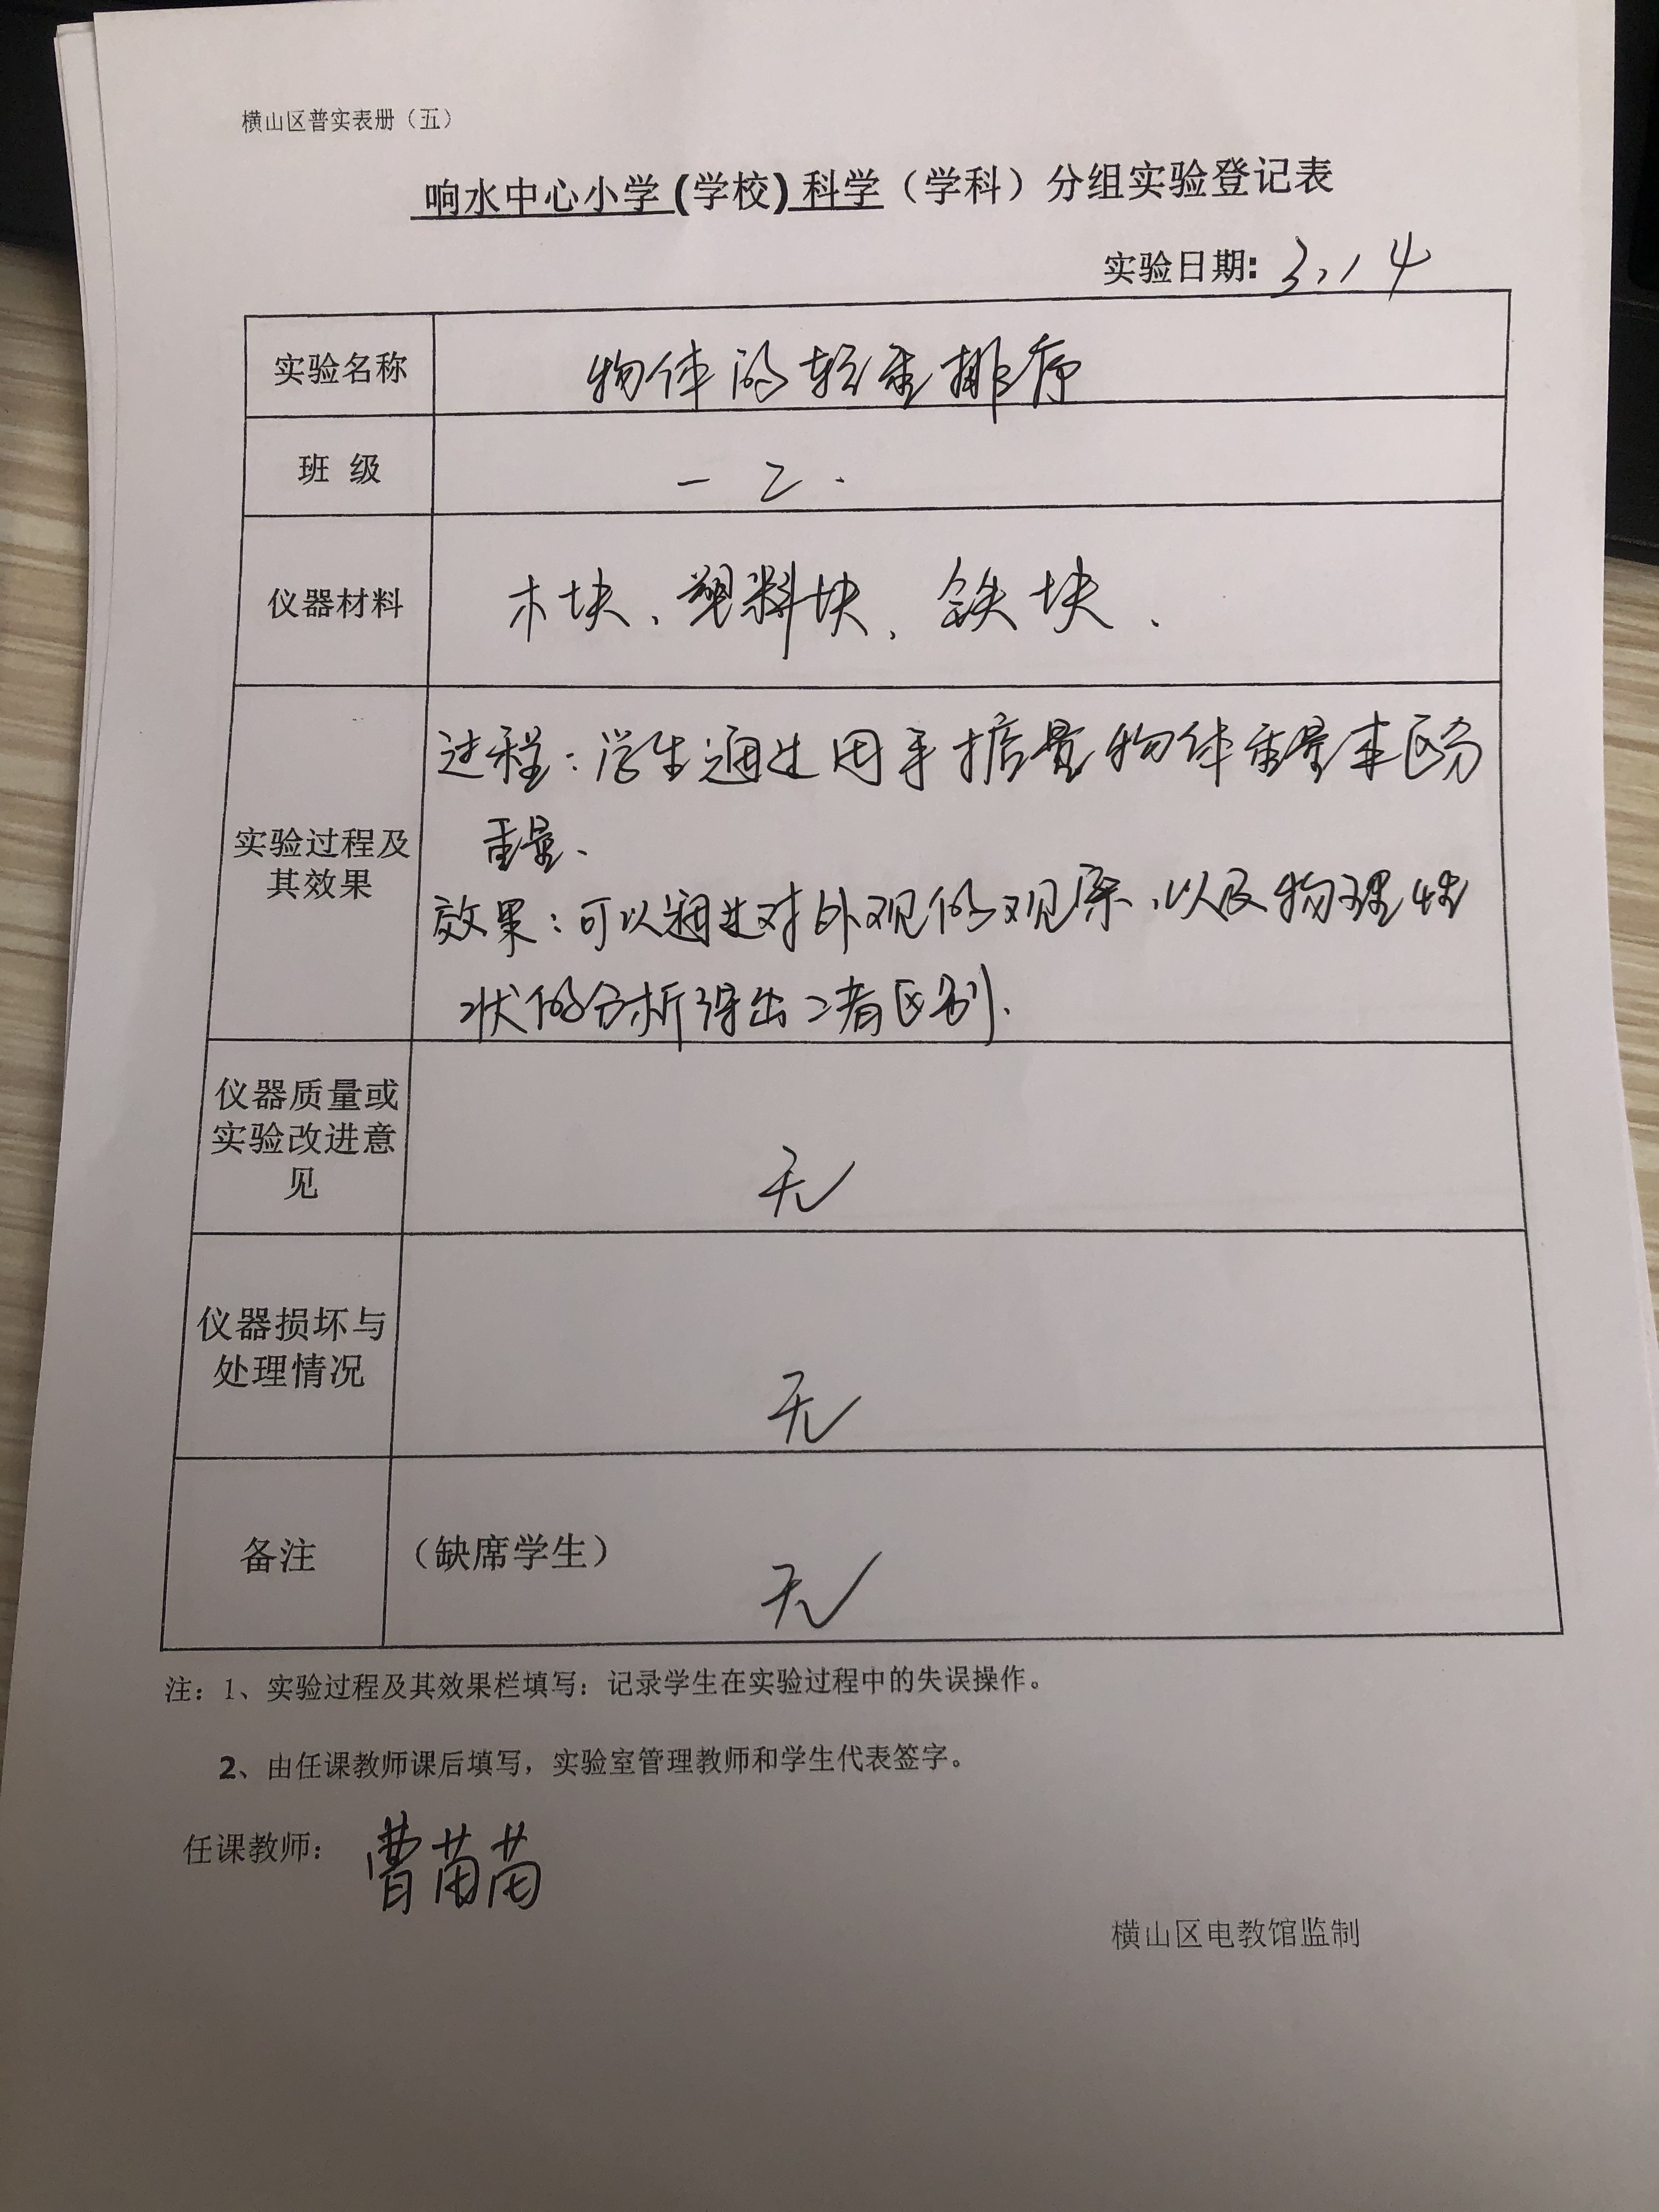 横山区普实表册（五）
响水中心小学(学校)科学（学科）分组实验登记表
实验日期: 3.14
实验名称 物体的轻重排序
班 级 一 乙.
仪器材料 木块、塑料块、铁块、
实验过程及其效果
过程：学生通过用手掂量物体重量来区分
重量、
效果：可以通过对外观的观察、以及物理性
状的分析得出二者区别.
仪器质量或
实验改进意
见
无
仪器损坏与
处理情况
无
备注 （缺席学生）
无
注：1、实验过程及其效果栏填写：记录学生在实验过程中的失误操作。
2、由任课教师课后填写，实验室管理教师和学生代表签字。
任课教师： 曹苗苗
横山区电教馆监制